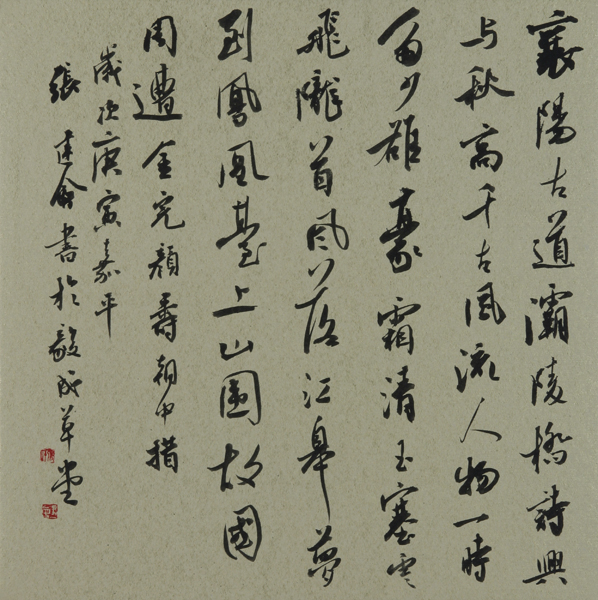 襄陽古道灞陵橋詩興
与秋高千古風流人物一時
多少雄豪霜清玉塞雲
飛隴首風落江皋夢
到鳳凰臺上山圍故國
周遭金完顏壽朝中措
歲次庚寅嘉平
張建會書於毅成草堂